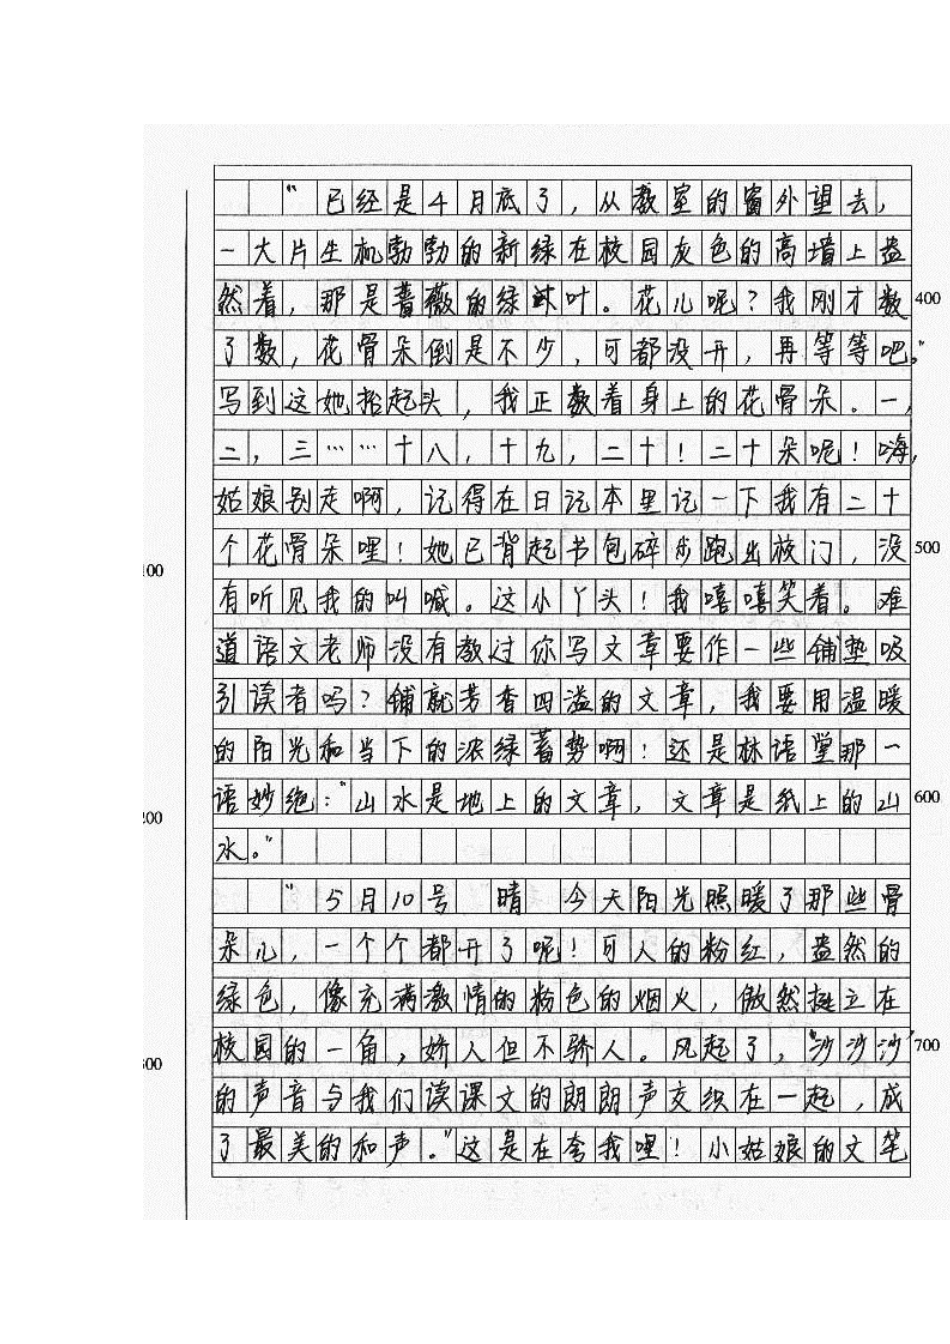 “已经是4月底了，从教室的窗外望去，
一大片生机勃勃的新绿在校园灰色的高墙上盎
然着，那是蔷薇的绿叶。花儿呢？我刚才数 400
了数，花骨朵倒是不少，可都没开，再等等吧。”
写到这她抬起头，我正数着身上的花骨朵。一，
二，三……十八，十九，二十！二十朵呢！嗨，
姑娘别走啊，记得在日记本里记一下我有二十
个花骨朵哩！她已背起书包碎步跑出校门，没 500
100
有听见我的叫喊。这小丫头！我嘻嘻笑着。难
道语文老师没有教过你写文章要作一些铺垫吸
引读者吗？铺就芳香四溢的文章，我要用温暖
的阳光和当下的浓绿蓄势啊！还是林语堂那一
语妙绝：“山水是地上的文章，文章是纸上的山 600
200
水。”
“5月10号 晴 今天阳光照暖了那些骨
朵儿，一个个都开了呢！可人的粉红，盎然的
绿色，像充满激情的粉色的烟火，傲然挺立在
校园的一角，娇人但不骄人。风起了，“沙沙沙” 700
300
的声音与我们读课文的朗朗声交织在一起，成
了最美的和声。”这是在夸我哩！小姑娘的文笔